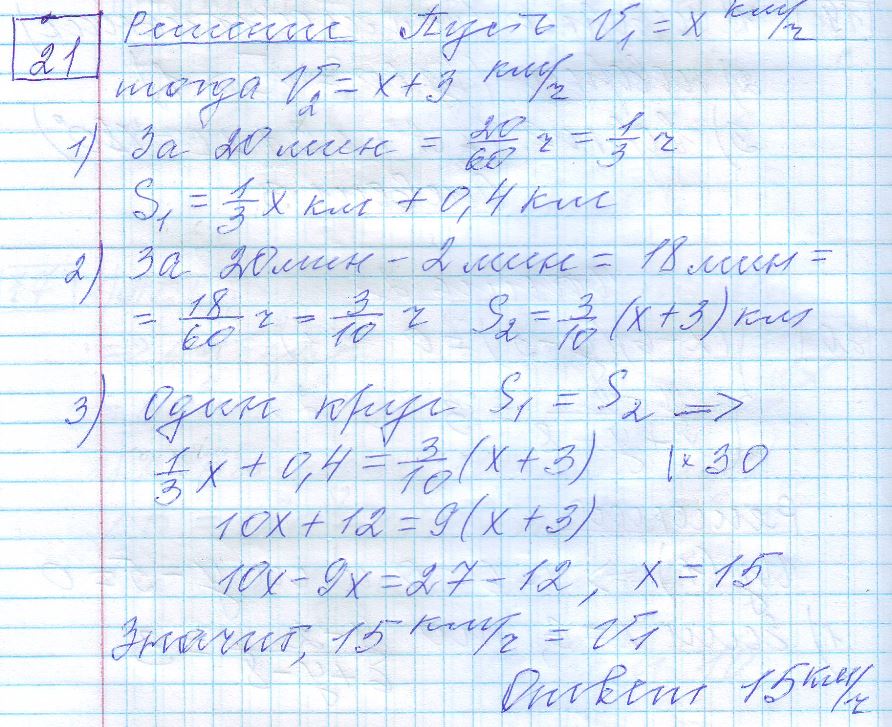 21
Решение Пусть V₁ = x км/ч
тогда V₂ = x + 3 км/ч
1) За 20 мин = 20/60 ч = 1/3 ч
S₁ = 1/3 x км + 0,4 км
2) За 20 мин - 2 мин = 18 мин =
= 18/60 ч = 3/10 ч S₂ = 3/10 (x + 3) км
3) Один круг S₁ = S₂ =>
1/3 x + 0,4 = 3/10 (x + 3) | × 30
10x + 12 = 9(x + 3)
10x - 9x = 27 - 12, x = 15
Значит, 15 км/ч = V₁
Ответ 15 км/ч